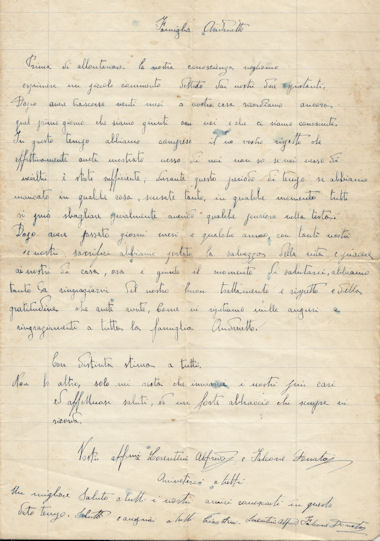 Famiglia Andrinetto
Prima di allontanarsi la nostra conoscenza vogliamo
esprimere un piccolo commento dettato dai nostri due
Dopo aver trascorso venti mesi a vostra casa ricordiamo ancora,
quel primo giorno che siamo giunti con voi e che ci siamo conosciuti.
In questo tempo abbiamo compreso il vostro rispetto che
effettivamente avete mostrato verso di noi non so se noi verso di
voialtri è stato sufficiente, durante questo periodo di tempo se abbiamo
mancato in qualche cosa, scusate tanto, in qualche momento tutti
si può sbagliare ugualmente avendo qualche pensiero nella testa.
Dopo aver passato giorni mesi e qualche anno, con tanti nostri
e vostri sacrifici abbiamo portato la salvezza della vita e
ai nostri di casa, ora è giunto il momento di salutarci, abbiamo
tanto da ringraziarvi del vostro buon trattamento e rispetto e della
gratitudine che avete avuto, come vi ripetiamo mille auguri e
ringraziamenti a tutta la famiglia Andrinetto.
Con distinta stima a tutti.
Non altro, solo mi resta che inviare i nostri più cari
ed affettuosi saluti, ed un forte abbraccio che sempre vi
ricorda.
Vostri affmi Lorentini Alfredo e Falcone Donato
Arrivederci a tutti
Un migliore saluto a tutti i nostri amici conosciuti in questo
tempo. Saluti e auguri a tutti Lorentini Alfredo Falcone Donato